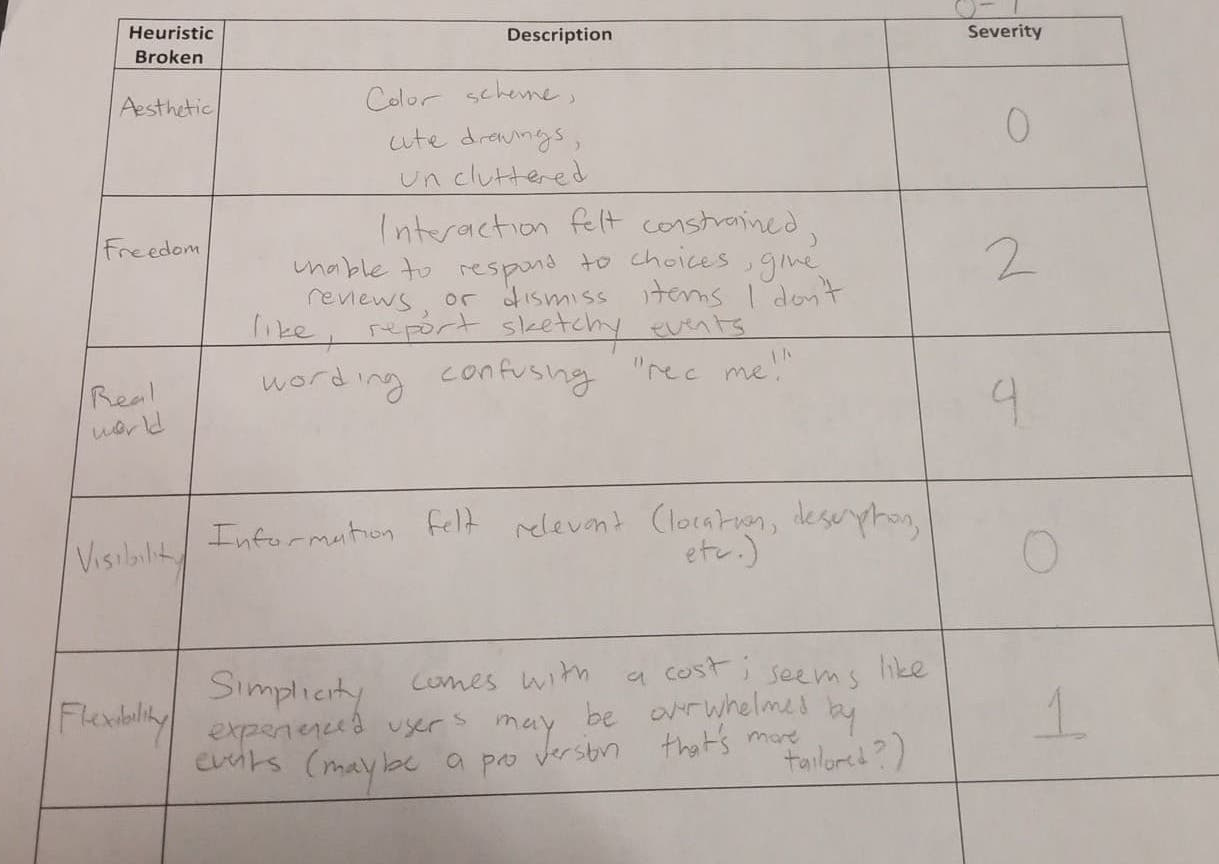 Heuristic Broken
Description
Severity
Aesthetic
Color scheme,
cute drawings,
uncluttered
0
Freedom
Interaction felt constrained,
unable to respond to choices, give
reviews, or dismiss items I don't
like, report sketchy events
2
Real
world
wording confusing "rec me!"
4
Visibility
Information felt relevant (location, description,
etc.)
0
Flexibility
Simplicity comes with a cost; seems like
experienced users may be overwhelmed by
events (maybe a pro version that's more
tailored?)
1